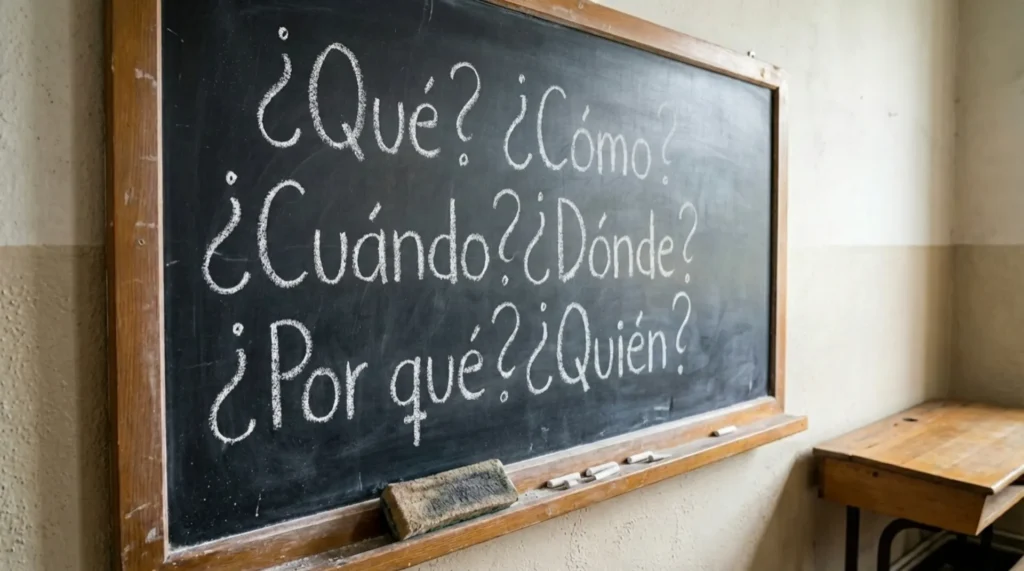 ¿Qué? ¿Cómo?
¿Cuándo? ¿Dónde?
¿Por qué? ¿Quién?